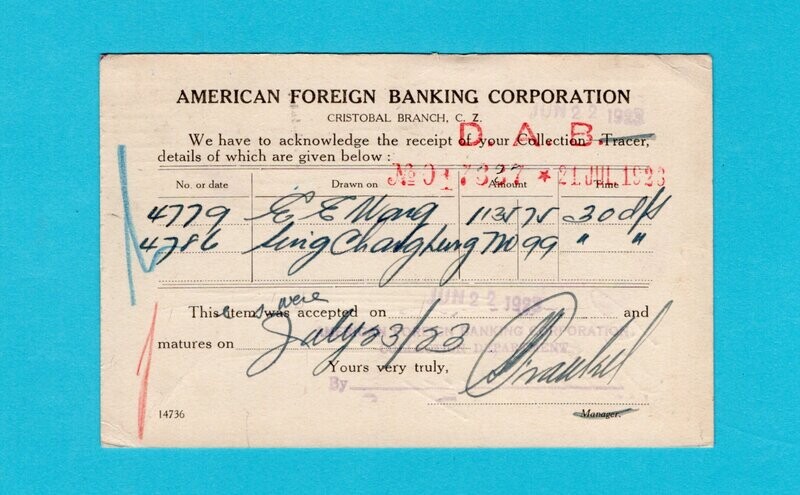 AMERICAN FOREIGN BANKING CORPORATION
JUN 22 1923
CRISTOBAL BRANCH, C. Z.
D. A. B.
We have to acknowledge the receipt of your Collection Tracer,
details of which are given below :
No 017327 * 21 JUL 1923
No. or date Drawn on Amount Time
4779 E E Wong 113575 30 d/s
4786 Sing Chong 99 " "
JUN 22 1923
This items were accepted on and
matures on July 23/23
AMERICAN FOREIGN BANKING CORPORATION,
DEPARTMENT
Yours very truly,
By
14736 Manager.